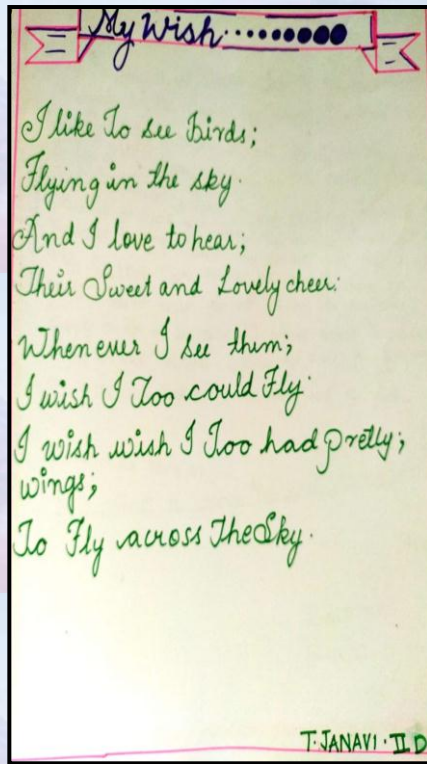 My Wish.........
I like To see Birds;
Flying in the sky.
And I love to hear;
Their Sweet and Lovely cheer.
Whenever I see them;
I wish I Too could Fly.
I wish wish I Too had pretty;
wings;
To Fly across The Sky.
T. JANAVI. II D